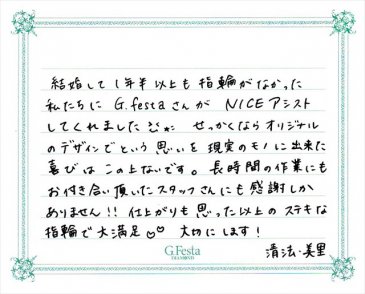 結婚して1年半以上も指輪がなかった
私たちに G.festaさんが NICEアシスト
してくれました せっかくならオリジナル
のデザインでという思いを現実のモノに出来た
喜びはこの上ないです。長時間の作業にも
お付き合い頂いたスタッフさんにも感謝しか
ありません!! 仕上がりも思った以上のステキな
指輪で大満足♡♡ 大切にします!
清法・美里
G.Festa
DIAMOND